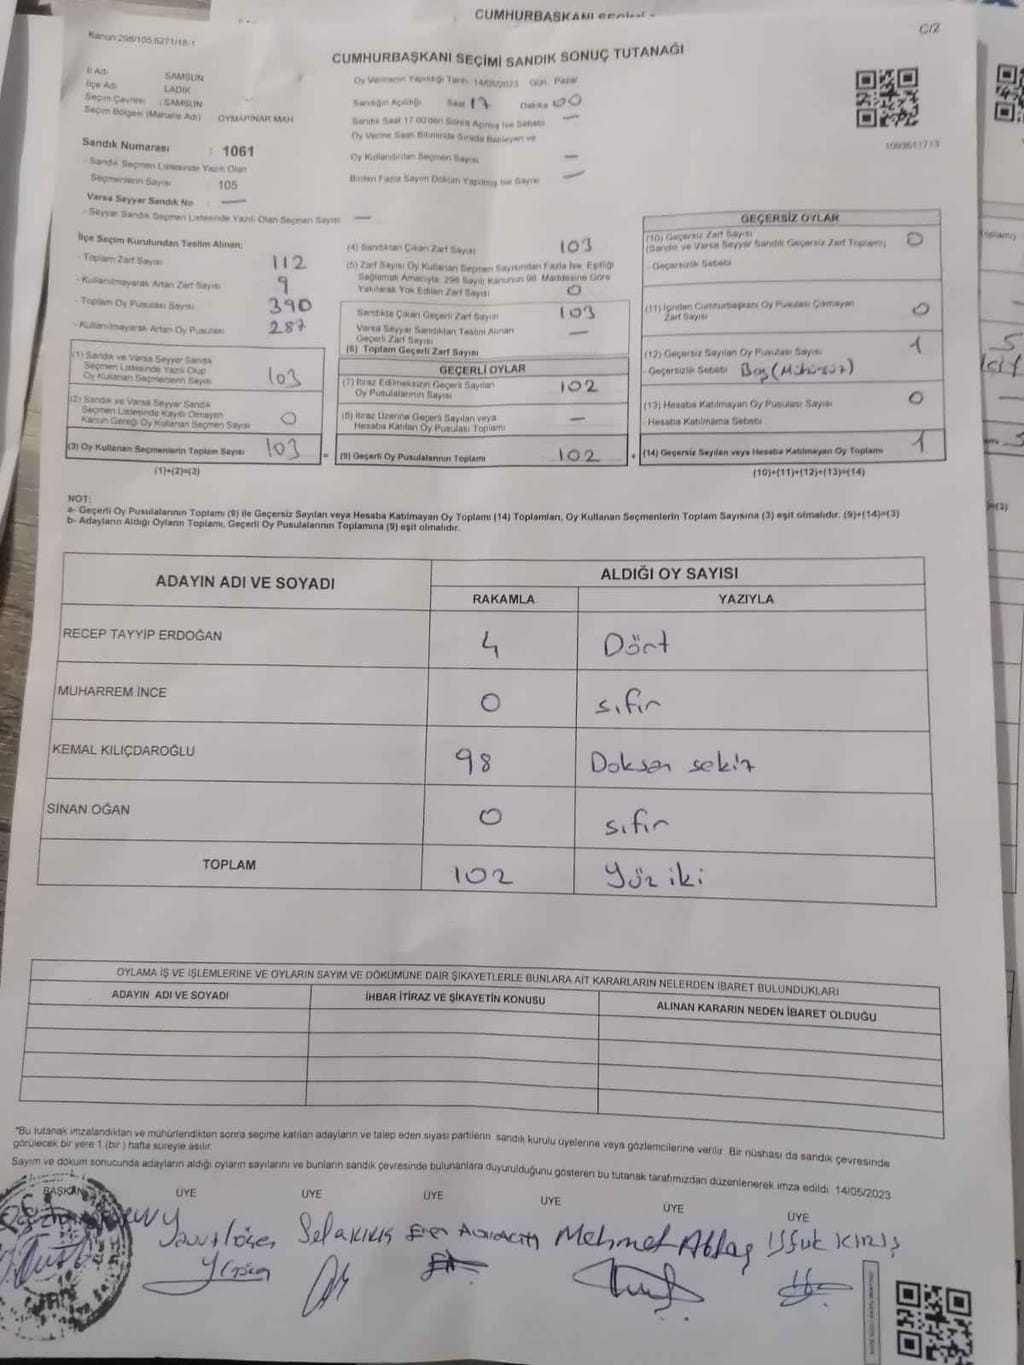 CUMHURBAŞKANI
Kanun:298/105,6271/18-1
C/Z
CUMHURBAŞKANI SEÇİMİ SANDIK SONUÇ TUTANAĞI
İl Adı SAMSUN
İlçe Adı LADİK
Seçim Çevresi : SAMSUN
Seçim Bölgesi (Mahalle Adı) OYMAPINAR MAH
Sandık Numarası : 1061
- Sandık Seçmen Listesinde Yazılı Olan
Seçmenlerin Sayısı 105
Varsa Seyyar Sandık No —
- Seyyar Sandık Seçmen Listesinde Yazılı Olan Seçmen Sayısı —
Oy Vermenin Yapıldığı Tarih :14/05/2023 Gün Pazar
Sandığın Açıldığı Saat 17 Dakika 00
Sandık Saat 17.00'den Sonra Açılmış İse Sebebi —
Oy Verme Saati Bitiminde Sırada Bekleyen ve
Oy Kullandırılan Seçmen Sayısı —
Birden Fazla Sayım Döküm Yapılmış İse Sayısı —
İlçe Seçim Kurulundan Teslim Alınan:
- Toplam Zarf Sayısı 112
- Kullanılmayarak Artan Zarf Sayısı 9
- Toplam Oy Pusulası Sayısı 390
- Kullanılmayarak Artan Oy Pusulası 287
(1) Sandık ve Varsa Seyyar Sandık
Seçmen Listesinde Yazılı Olup
Oy Kullanan Seçmenlerin Sayısı 103
(2) Sandık ve Varsa Seyyar Sandık
Seçmen Listesinde Kayıtlı Olmayan
Kanun Gereği Oy Kullanan Seçmen Sayısı 0
(3) Oy Kullanan Seçmenlerin Toplam Sayısı 103
(1)+(2)=(3)
(4) Sandıktan Çıkan Zarf Sayısı 103
(5) Zarf Sayısı Oy Kullanan Seçmen Sayısından Fazla İse, Eşitliği
Sağlamak Amacıyla, 298 Sayılı Kanunun 98. Maddesine Göre
Yakılarak Yok Edilen Zarf Sayısı 0
Sandıkta Çıkan Geçerli Zarf Sayısı 103
Varsa Seyyar Sandıktan Teslim Alınan
Geçerli Zarf Sayısı —
(6) Toplam Geçerli Zarf Sayısı
GEÇERLİ OYLAR
(7) İtiraz Edilmeksizin Geçerli Sayılan
Oy Pusulalarının Sayısı 102
(8) İtiraz Üzerine Geçerli Sayılan veya
Hesaba Katılan Oy Pusulası Toplamı —
(9) Geçerli Oy Pusulalarının Toplamı 102
GEÇERSİZ OYLAR
(10) Geçersiz Zarf Sayısı
(Sandık ve Varsa Seyyar Sandık Geçersiz Zarf Toplamı) 0
- Geçersizlik Sebebi
(11) İçinden Cumhurbaşkanı Oy Pusulası Çıkmayan
Zarf Sayısı 0
(12) Geçersiz Sayılan Oy Pusulası Sayısı 1
- Geçersizlik Sebebi Boş (Mühürsüz)
(13) Hesaba Katılmayan Oy Pusulası Sayısı 0
- Hesaba Katılmama Sebebi
(14) Geçersiz Sayılan veya Hesaba Katılmayan Oy Toplamı 1
(10)+(11)+(12)+(13)=(14)
NOT:
a- Geçerli Oy Pusulalarının Toplamı (9) ile Geçersiz Sayılan veya Hesaba Katılmayan Oy Toplamı (14) Toplamları, Oy Kullanan Seçmenlerin Toplam Sayısına (3) eşit olmalıdır. (9)+(14)=(3)
b- Adayların Aldığı Oyların Toplamı, Geçerli Oy Pusulalarının Toplamına (9) eşit olmalıdır.
ADAYIN ADI VE SOYADI
ALDIĞI OY SAYISI
RAKAMLA YAZIYLA
RECEP TAYYİP ERDOĞAN 4 Dört
MUHARREM İNCE 0 sıfır
KEMAL KILIÇDAROĞLU 98 Doksan sekiz
SİNAN OĞAN 0 sıfır
TOPLAM 102 Yüz iki
OYLAMA İŞ VE İŞLEMLERİNE VE OYLARIN SAYIM VE DÖKÜMÜNE DAİR ŞİKAYETLERLE BUNLARA AİT KARARLARIN NELERDEN İBARET BULUNDUKLARI
ADAYIN ADI VE SOYADI İHBAR İTİRAZ VE ŞİKAYETİN KONUSU ALINAN KARARIN NEDEN İBARET OLDUĞU
*Bu tutanak imzalandıktan ve mühürlendikten sonra seçime katılan adayların ve talep eden siyasi partilerin sandık kurulu üyelerine veya gözlemcilerine verilir. Bir nüshası da sandık çevresinde
görülecek bir yere 1 (bir ) hafta süreyle asılır.
Sayım ve döküm sonucunda adayların aldığı oyların sayılarını ve bunların sandık çevresinde bulunanlara duyurulduğunu gösteren bu tutanak tarafımızdan düzenlenerek imza edildi. 14/05/2023
BAŞKAN ÜYE ÜYE ÜYE ÜYE ÜYE ÜYE
Mehmet Aktaş Ufuk KIRIŞ